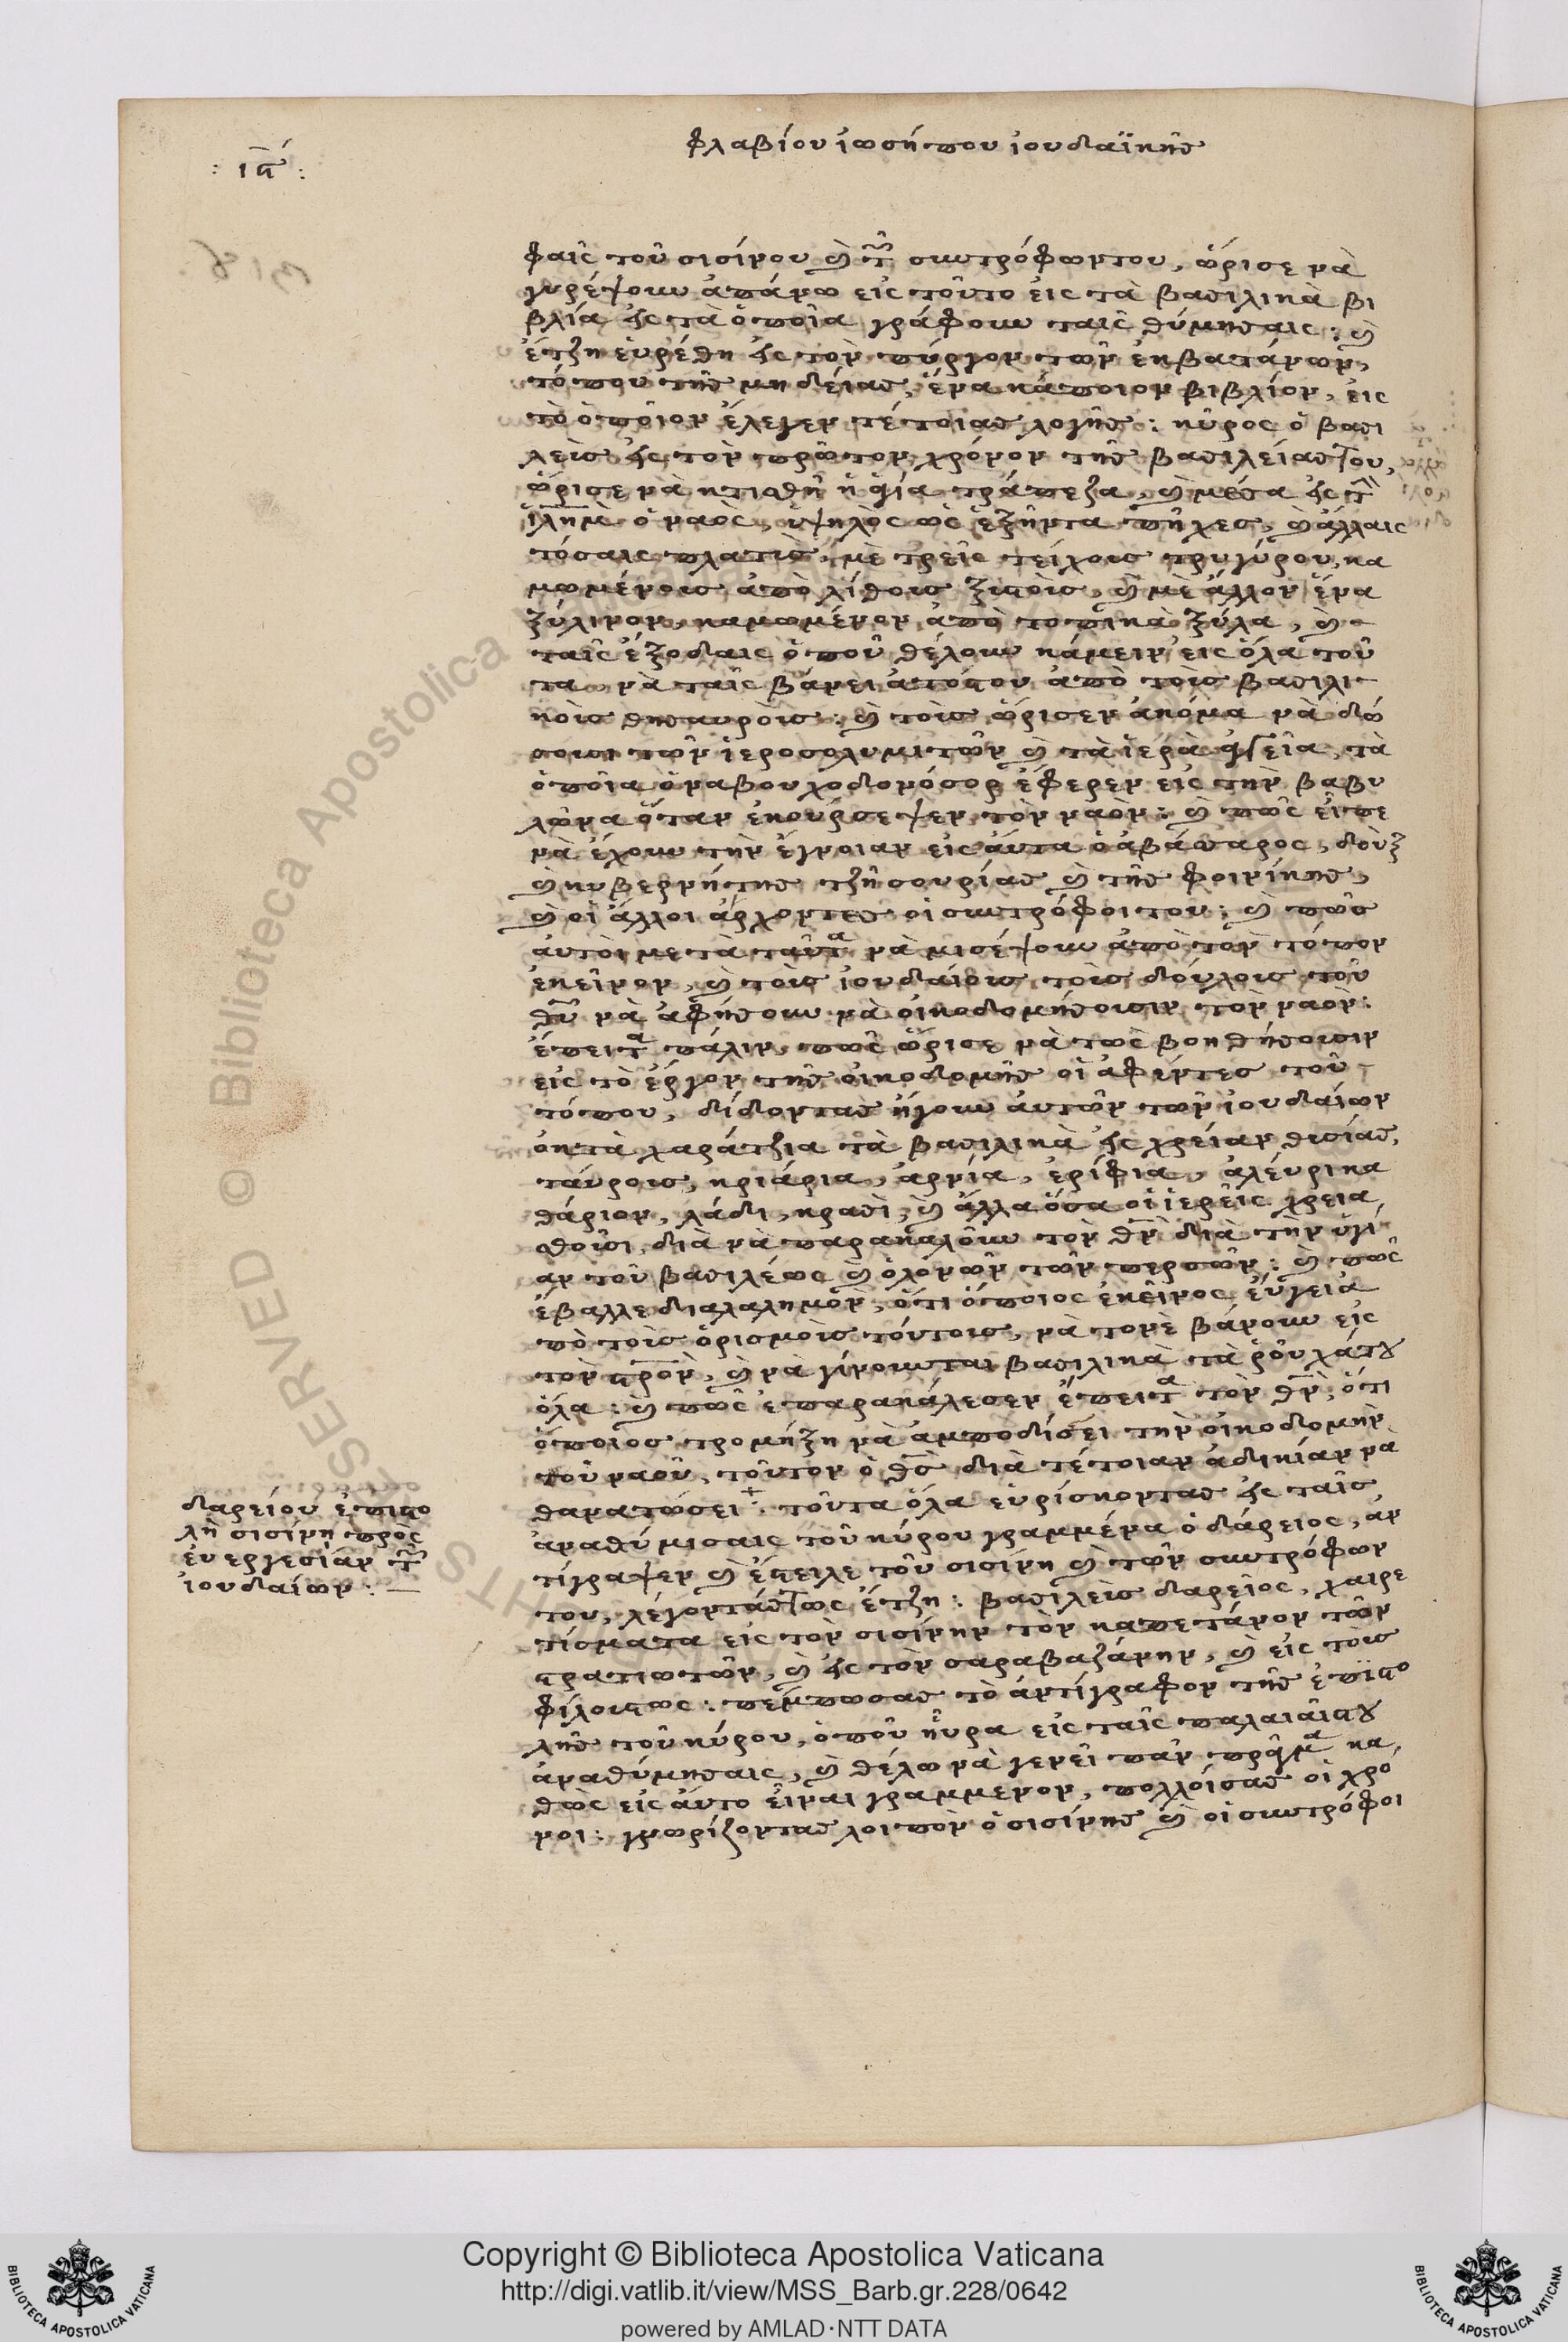 φλαβίου ἰωσήπου ἰουδαϊκῆς
: ια :
φαῖς τοῦ σισίνου καὶ τῶν συντρόφωντου, ὥρισε νὰ
γυρέψουν ἀπάνω εἰς τοῦτο εἰς τὰ βασιλικὰ βι
βλία εἰς τὰ ὁποῖα γράφουν ταῖς θύμησαις: καὶ
ἔτζη εὑρέθη εἰς τὸν πύργον τῶν ἐκβατάνων,
τόπου τῆς μηδείας, ἕνα κάποιον βιβλίον, εἰς
τὸ ὁποῖον ἔλεγεν τέτοιας λογῆς: κῦρος ὁ βασι
λεὺς εἰς τὸν πρῶτον χρόνον τῆς βασιλείαςτου,
ὥρισε νὰ κτισθῆ ἡ ἁγία τράπεζα, καὶ μέσα εἰς τὴν
ἱλημ ὁ ναὸς, ὑψηλὸς ὡς ἑξῆντα πῆχες, καὶ ἄλλαις
τόσαις πλατὺς, μὲ τρεῖς τείχους τρυγύρου, κα
μωμένους ἀπὸ λίθους ξυστοὺς, καὶ μὲ ἄλλον ἕνα
ξύλινον, καμωμένον ἀπὸ τοπικὰ ξύλα, καὶ
ταῖς ἔξοδαις ὁποῦ θέλουν κάμειν εἰς ὅλα τοῦ
τα, νὰ ταῖς βάνει ἀπότου ἀπὸ τοὺς βασιλι
κοὺς θησαυροὺς: καὶ τοὺς ὥρισεν ἀκόμα νὰ δώ
σουσι τῶν ἱεροσολυμιτῶν καὶ τὰ ἱερὰ ἀγγεῖα, τὰ
ὁποῖα ὁ ναβουχοδονόσορ ἔφερεν εἰς τὴν βαβυ
λῶνα ὅταν ἐκούρσεψεν τὸν ναὸν: καὶ πῶς εἶπε
νὰ ἔχουν τὴν ἔγνοιαν εἰς αὐτα ὁ ἀβάσσαρος, δοὺξ
καὶ κυβερνήτης τζῆ συρίας καὶ τῆς φοινίκης,
καὶ οἱ ἄλλοι ἄρχοντες οἱ συντρόφοι του: καὶ πῶς
αὐτοὶ μετὰ ταῦτα νὰ μισέψουν ἀπὸ τὸν τόπον
ἐκεῖνον, καὶ τοὺς ἰουδαίους τοὺς δούλους τοῦ
θῦ νὰ ἀφήσουν νὰ οἰκοδομήσουσιν τὸν ναὸν:
ἔπειτα πάλιν, πῶς ὥρισε νὰ τοὺς βοηθήσουσιν
εἰς τὸ ἔργον τῆς οἰκοδομῆς οἱ ἀφέντες τοῦ
τόπου, δίδοντας ἤγουν αὐτῶν τῶν ἰουδαίων
ἀκ τὰ χαράτζια τὰ βασιλικὰ εἰς χρείαν θυσίας,
ταύρους, κριάρια, ἀρνία, ἐρίφια, ἀλεύρι κα
θάριον, λάδι, κρασὶ, καὶ ἄλλα ὅσα οἱ ἱερεῖς χρεια
σθοῦσι, διὰ νὰ παρακαλοῦν τὸν θν διὰ τὴν ὑγί
αν τοῦ βασιλέως καὶ ὁλονῶν τῶν περσῶν: καὶ πῶς
ἔβαλλε διαλαλημὸν, ὅτι ὅποιος ἐκεῖνος εὔγει ἀ
πὸ τοὺς ὁρισμοὺς τούτους, νὰ τονὲ βάνουν εἰς
τὸν στρον, καὶ νὰ γίνουνται βασιλικὰ τὰ ροῦχάτου
ὅλα: καὶ πῶς ἐπαρακάλεσεν ἔπειτα τὸν θν, ὅτι
ὅποιος τρομήξη νὰ ἀμποδίσει τὴν οἰκοδομὴν
τοῦ ναοῦ, τοῦτον ὁ θς διὰ τέτοιαν ἀδικίαν νὰ
θανατώσει: τοῦτα ὅλα εὑρίσκοντας εἰς ταῖς
ἀναθύμισαις τοῦ κύρου γραμμένα ὁ δάρειος, ἀν
τίγραψεν καὶ ἔστειλε τοῦ σισίνη καὶ τῶν συντρόφων
του, λέγοντάςτως ἔτζη: βασιλεὺς δαρεῖος, χαιρε
τίσματα εἰς τὸν σισίνην τὸν καπετάνον τῶν
στρατιωτῶν, καὶ εἰς τὸν σαραβαζάνην, καὶ εἰς τοὺς
φίλουςτως: πέμπωσας τὸ ἀντίγραφον τῆς ἐπιστο
λῆς τοῦ κύρου, ὁποῦ ηὗρα εἰς ταῖς παλαιαῖςτου
ἀναθύμησαις, καὶ θέλω νὰ γενεῖ πᾶν πρᾶγμα κα
θὼς εἰς αὐτο εἶναι γραμμενον, πολλοίσας οἱ χρό
νοι: γνωρίζοντας λοιπὸν ὁ σισίνης καὶ οἱ συντρόφοι
δαρείου ἐπιστο
λὴ σισίνη πρὸς
εὐεργεσίαν τῶν
ἰουδαίων: —
Copyright © Biblioteca Apostolica Vaticana
http://digi.vatlib.it/view/MSS_Barb.gr.228/0642
powered by AMLAD·NTT DATA
BIBLIOTECA APOSTOLICA VATICANA
BIBLIOTECA APOSTOLICA VATICANA